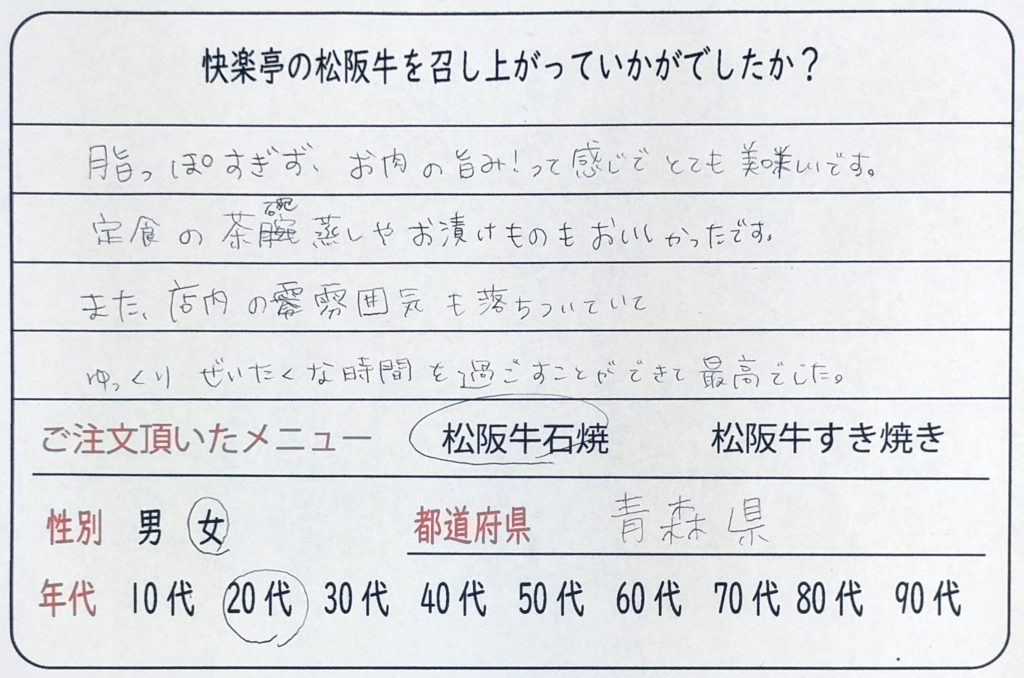 快楽亭の松阪牛を召し上がっていかがでしたか？
脂っぽすぎず、お肉の旨み!って感じでとても美味しいです。
定食の茶碗蒸しやお漬けものもおいしかったです。
また、店内の雰囲気も落ちついていて
ゆっくりぜいたくな時間を過ごすことができて最高でした。
ご注文頂いたメニュー 松阪牛石焼 松阪牛すき焼き
性別 男 女 都道府県 青森県
年代 10代 20代 30代 40代 50代 60代 70代 80代 90代